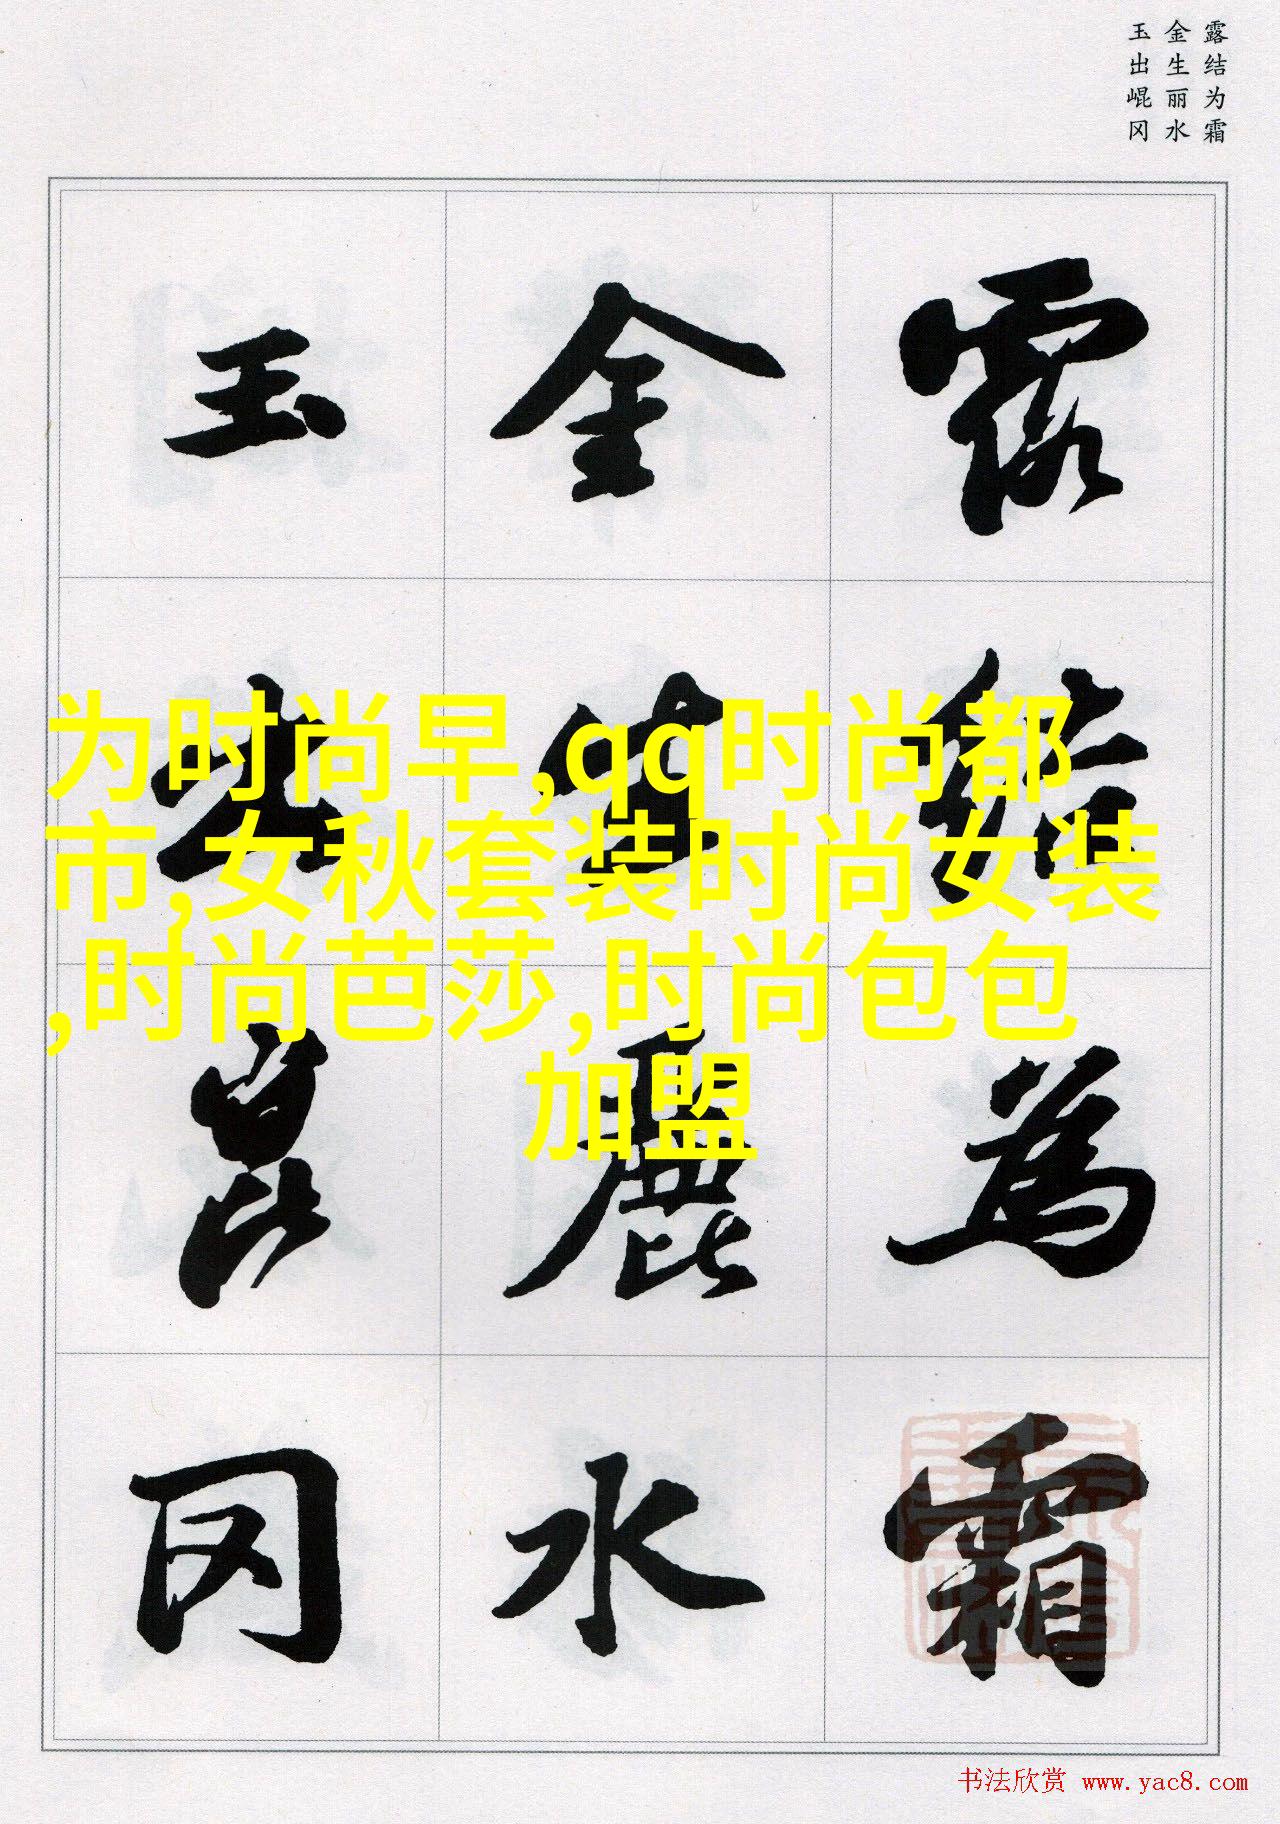 露结为霜
金生丽水
玉出崐冈
露結為霜
金生麗水
玉出崑冈
为时尚早,qq时尚都
市,女秋套装时尚女装
,时尚芭莎,时尚包包
加盟
书法欣赏 www.yac8.com